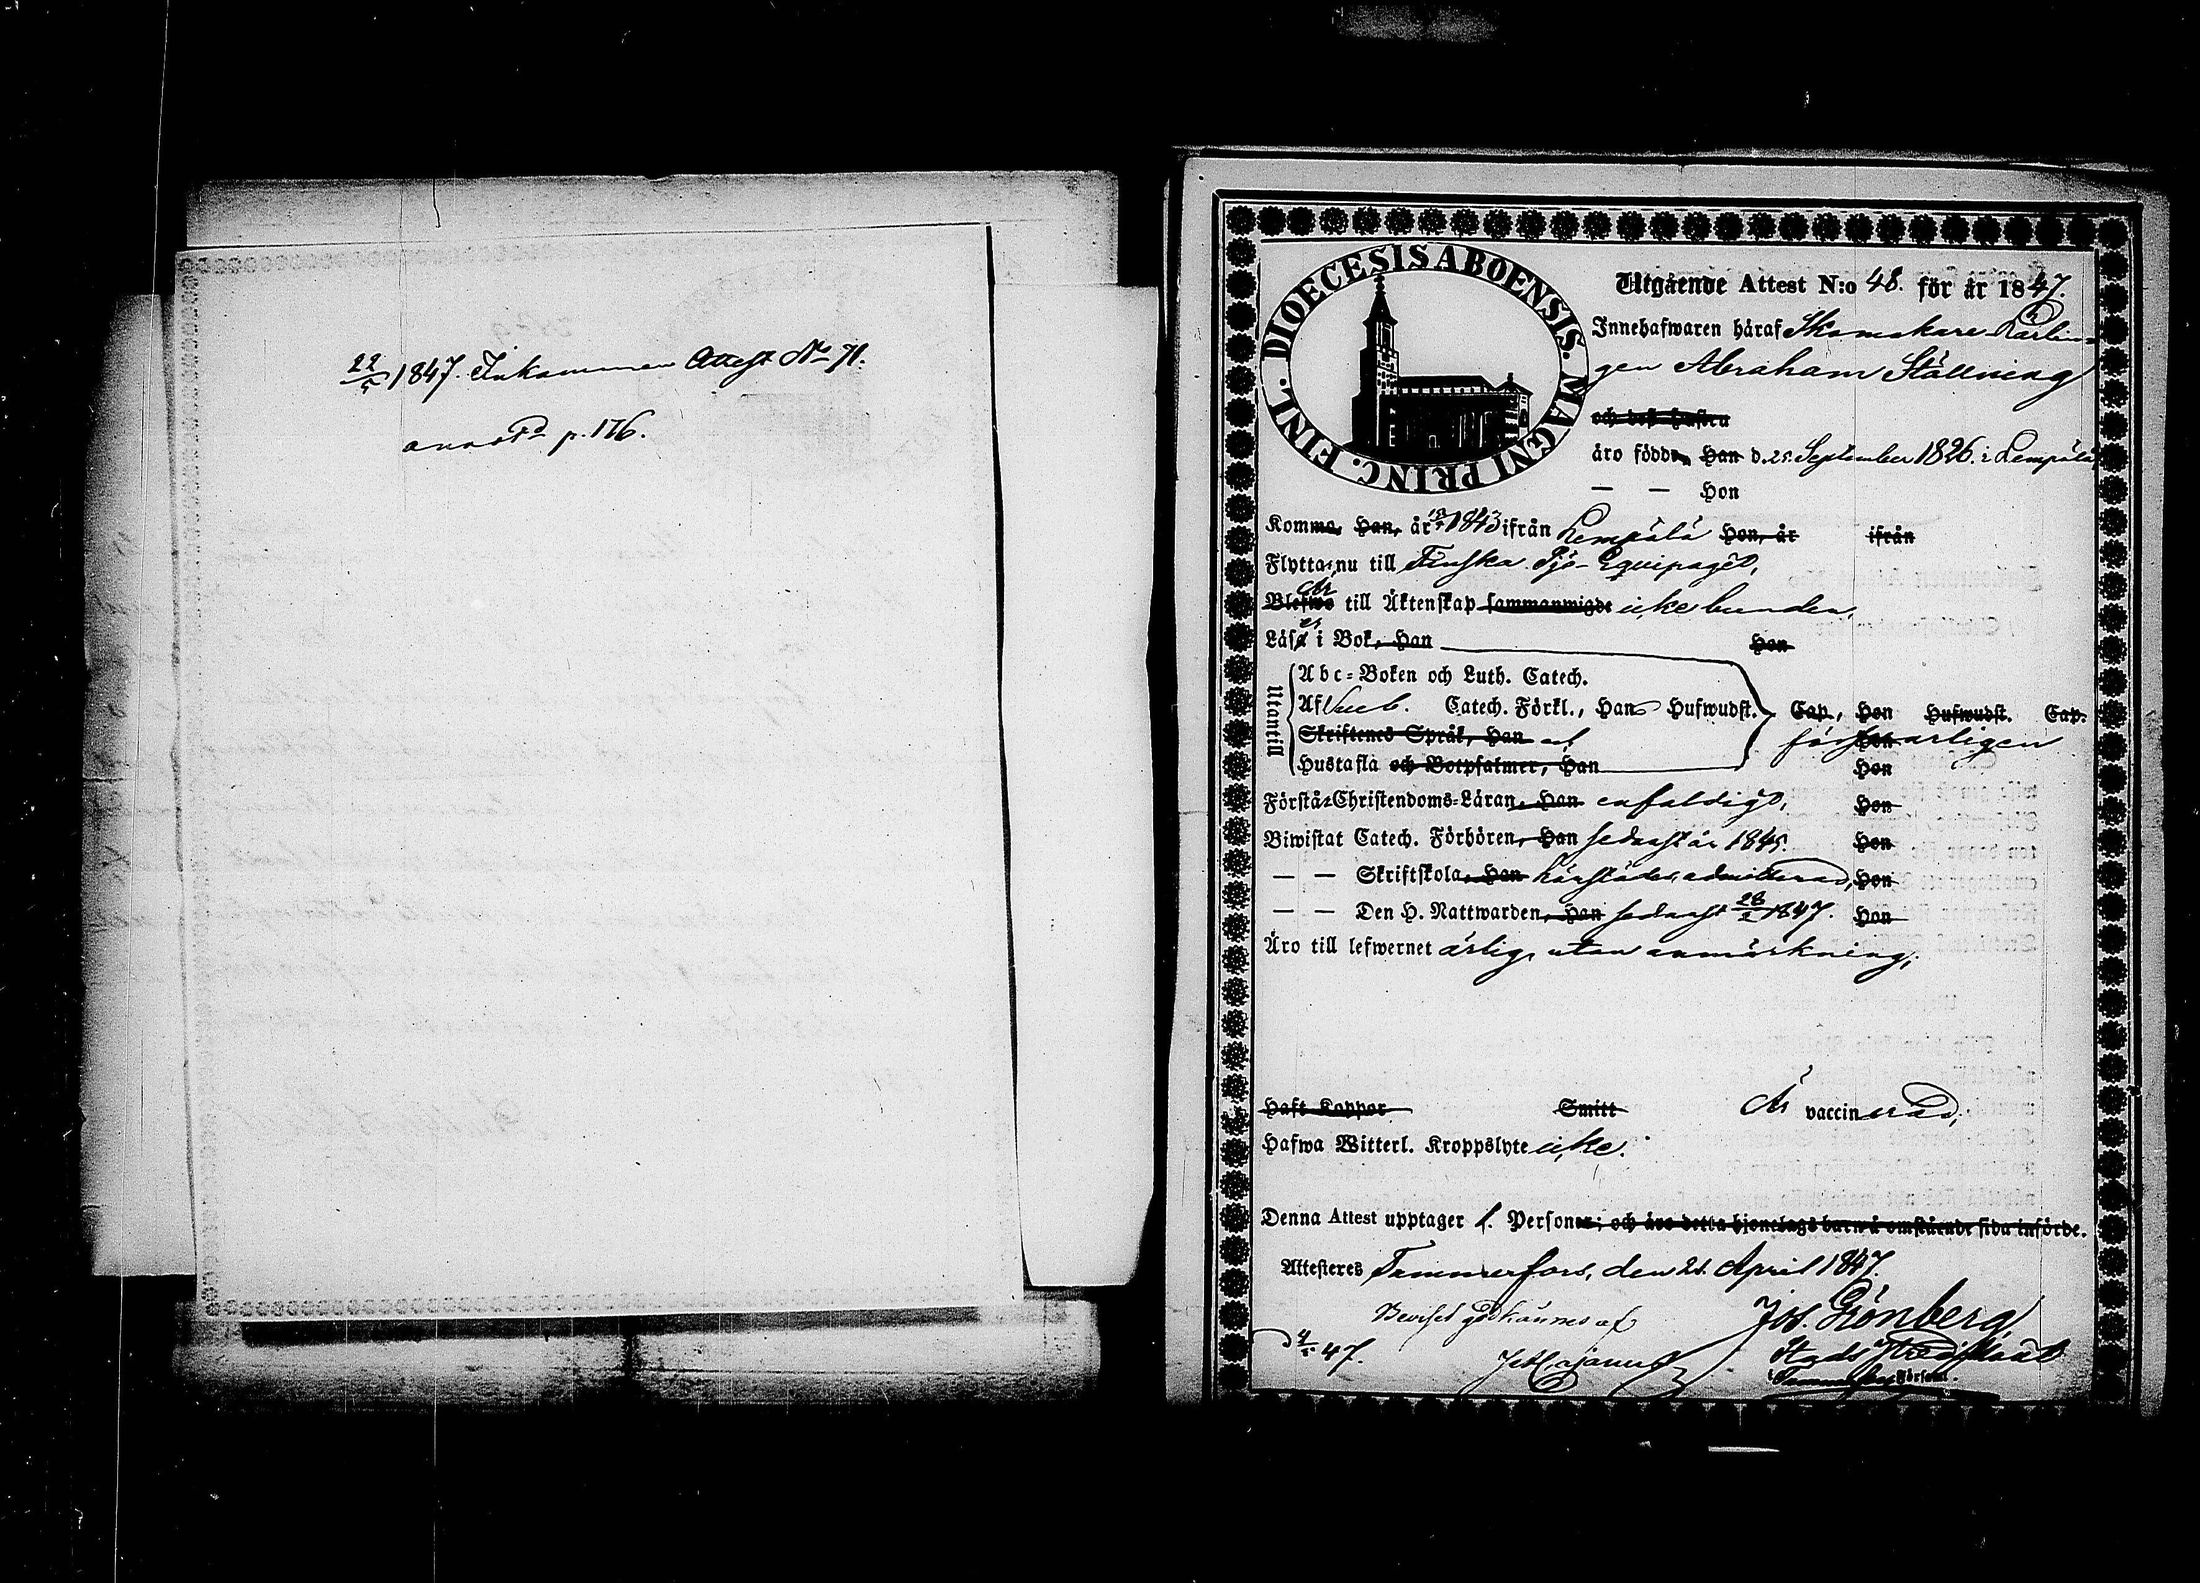 22/5 1847. Inkommen Attest No 71.
annotd p. 176.
DIOECESIS ABOENSIS. MAGNI PRINC. FINL.
Utgående Attest N:o 48. för år 1847.
Innehafwaren häraf Skomakare Lärlin-
gen Abraham Ställning
och dess hustru
äro födde, Han d. 25 September 1826. i Lempälä
— — Hon
Komma, Han, år 1843 ifrån Lempälä Hon, år ifrån
Flytta nu till Finska Sjö-Equipaget,
Är till Äktenskap sammanwigde icke bunden,
Läser i Bok, Han Hon
Utantill
Abc-Boken och Luth. Catech.
Af Sveb. Catech. Förkl., Hans Hufwudst. Cap., Hon Hufwudst. Cap.
Skriftenes Språk, Han och försvarligen Hon
Hustafla och Botpsalmer, Han Hon
Förstå Christendoms-Läran, Han enfaldigt, Hon
Biwistat Catech. Förhören, Han sednast år 1845. Hon
— — Skriftskola, Han härstädes admitterad, Hon
— — Den H. Nattwarden, Han sednast 28/2 1847. Hon
Äro till lefwernet ärlig, utan anmärkning,
Haft Koppor Smitt Är vaccinerad,
Hafwa Witterl. Kroppslyte icke.
Denna Attest upptager 1. Personer; och äro detta hjonelags barn å omstående sida införde.
Attesteres Tammerfors, den 21. April 1847.
Beviset godkännes af Jos. Grönberg
47.